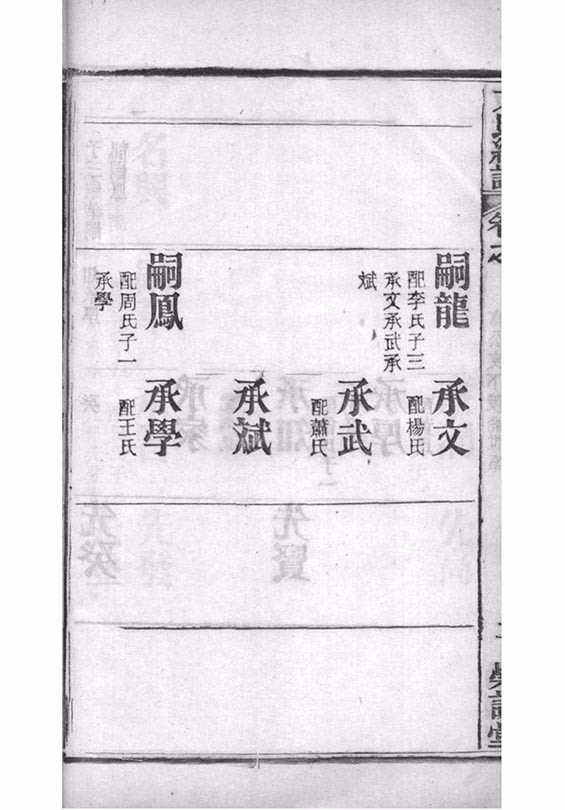 嗣龍
配李氏子三
承文承武承
斌
嗣鳳
配周氏子一
承學
承文
配楊氏
承武
配蕭氏
承斌
承學
配王氏